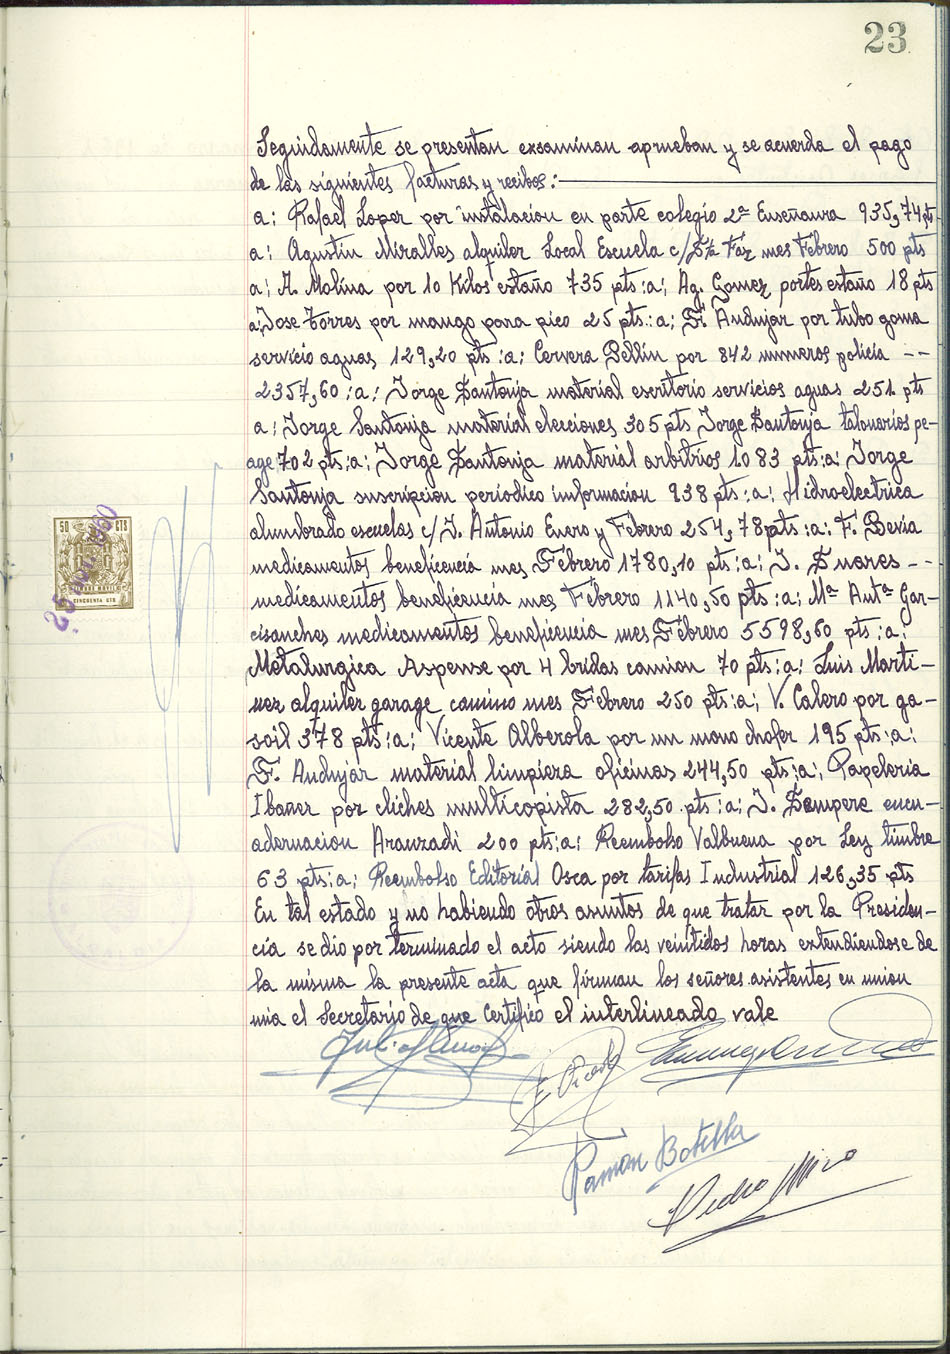 23
Seguidamente se presentan exsaminan aprueban y se acuerda el pago
de las siguientes facturas y recibos:
a: Rafael Lopez por instalacion en parte colegio 2ª Enseñanza 935,74 pts
a: Agustin Miralles alquiler Local Escuela c/ Sta Faz mes Febrero 500 pts
a: A. Molina por 10 Kilos estaño 735 pts :a: Ag. Gomez portes estaño 18 pts
a: Jose Torres por mango para pico 25 pts :a: F. Andujar por tubo goma
servicio aguas 129,20 pts :a: Cervera Bellin por 842 numeros policia --
2357,60 :a: Jorge Santonja material escritorio servicios aguas 251 pts
a: Jorge Santonja material elecciones 305 pts Jorge Santonja talonarios pe-
age 702 pts :a: Jorge Santonja material arbitrios 1083 pts :a: Jorge
Santonja suscripcion periodico informacion 938 pts :a: Hidroelectrica
alumbrado escuelas c/ J. Antonio Enero y Febrero 254,78 pts :a: F. Bevia
medicamentos beneficencia mes Febrero 1780,10 pts :a: J. Suares --
medicamentos beneficencia mes Febrero 1140,50 pts :a: Mª Antª Gar-
cisanches medicamentos beneficencia mes Febrero 5598,60 pts :a:
Metalurgica Aspense por 4 bridas camion 70 pts :a: Luis Marti-
nez alquiler garage camino mes Febrero 250 pts :a: V. Calero por ga-
soil 378 pts :a: Vicente Alberola por un mono chofer 195 pts :a:
F. Andujar material limpieza oficinas 244,50 pts :a: Papeleria
Ibañez por cliches multicopista 282,50 pts :a: J. Sempere encu-
adernacion Aranzadi 200 pts :a: Reembolso Valbuena por Ley timbre
63 pts :a: Reembolso Editorial Osca por tarifas Industrial 126,35 pts
En tal estado y no habiendo otros asuntos de que tratar por la Presiden-
cia se dio por terminado el acto siendo las veintidos horas extendiendose de
la misma la presente acta que firman los señores asistentes en union
mia el Secretario de que Certifico el interlineado vale
50 CTS
CINCUENTA CTS
Ramon Botella
Pedro Miro